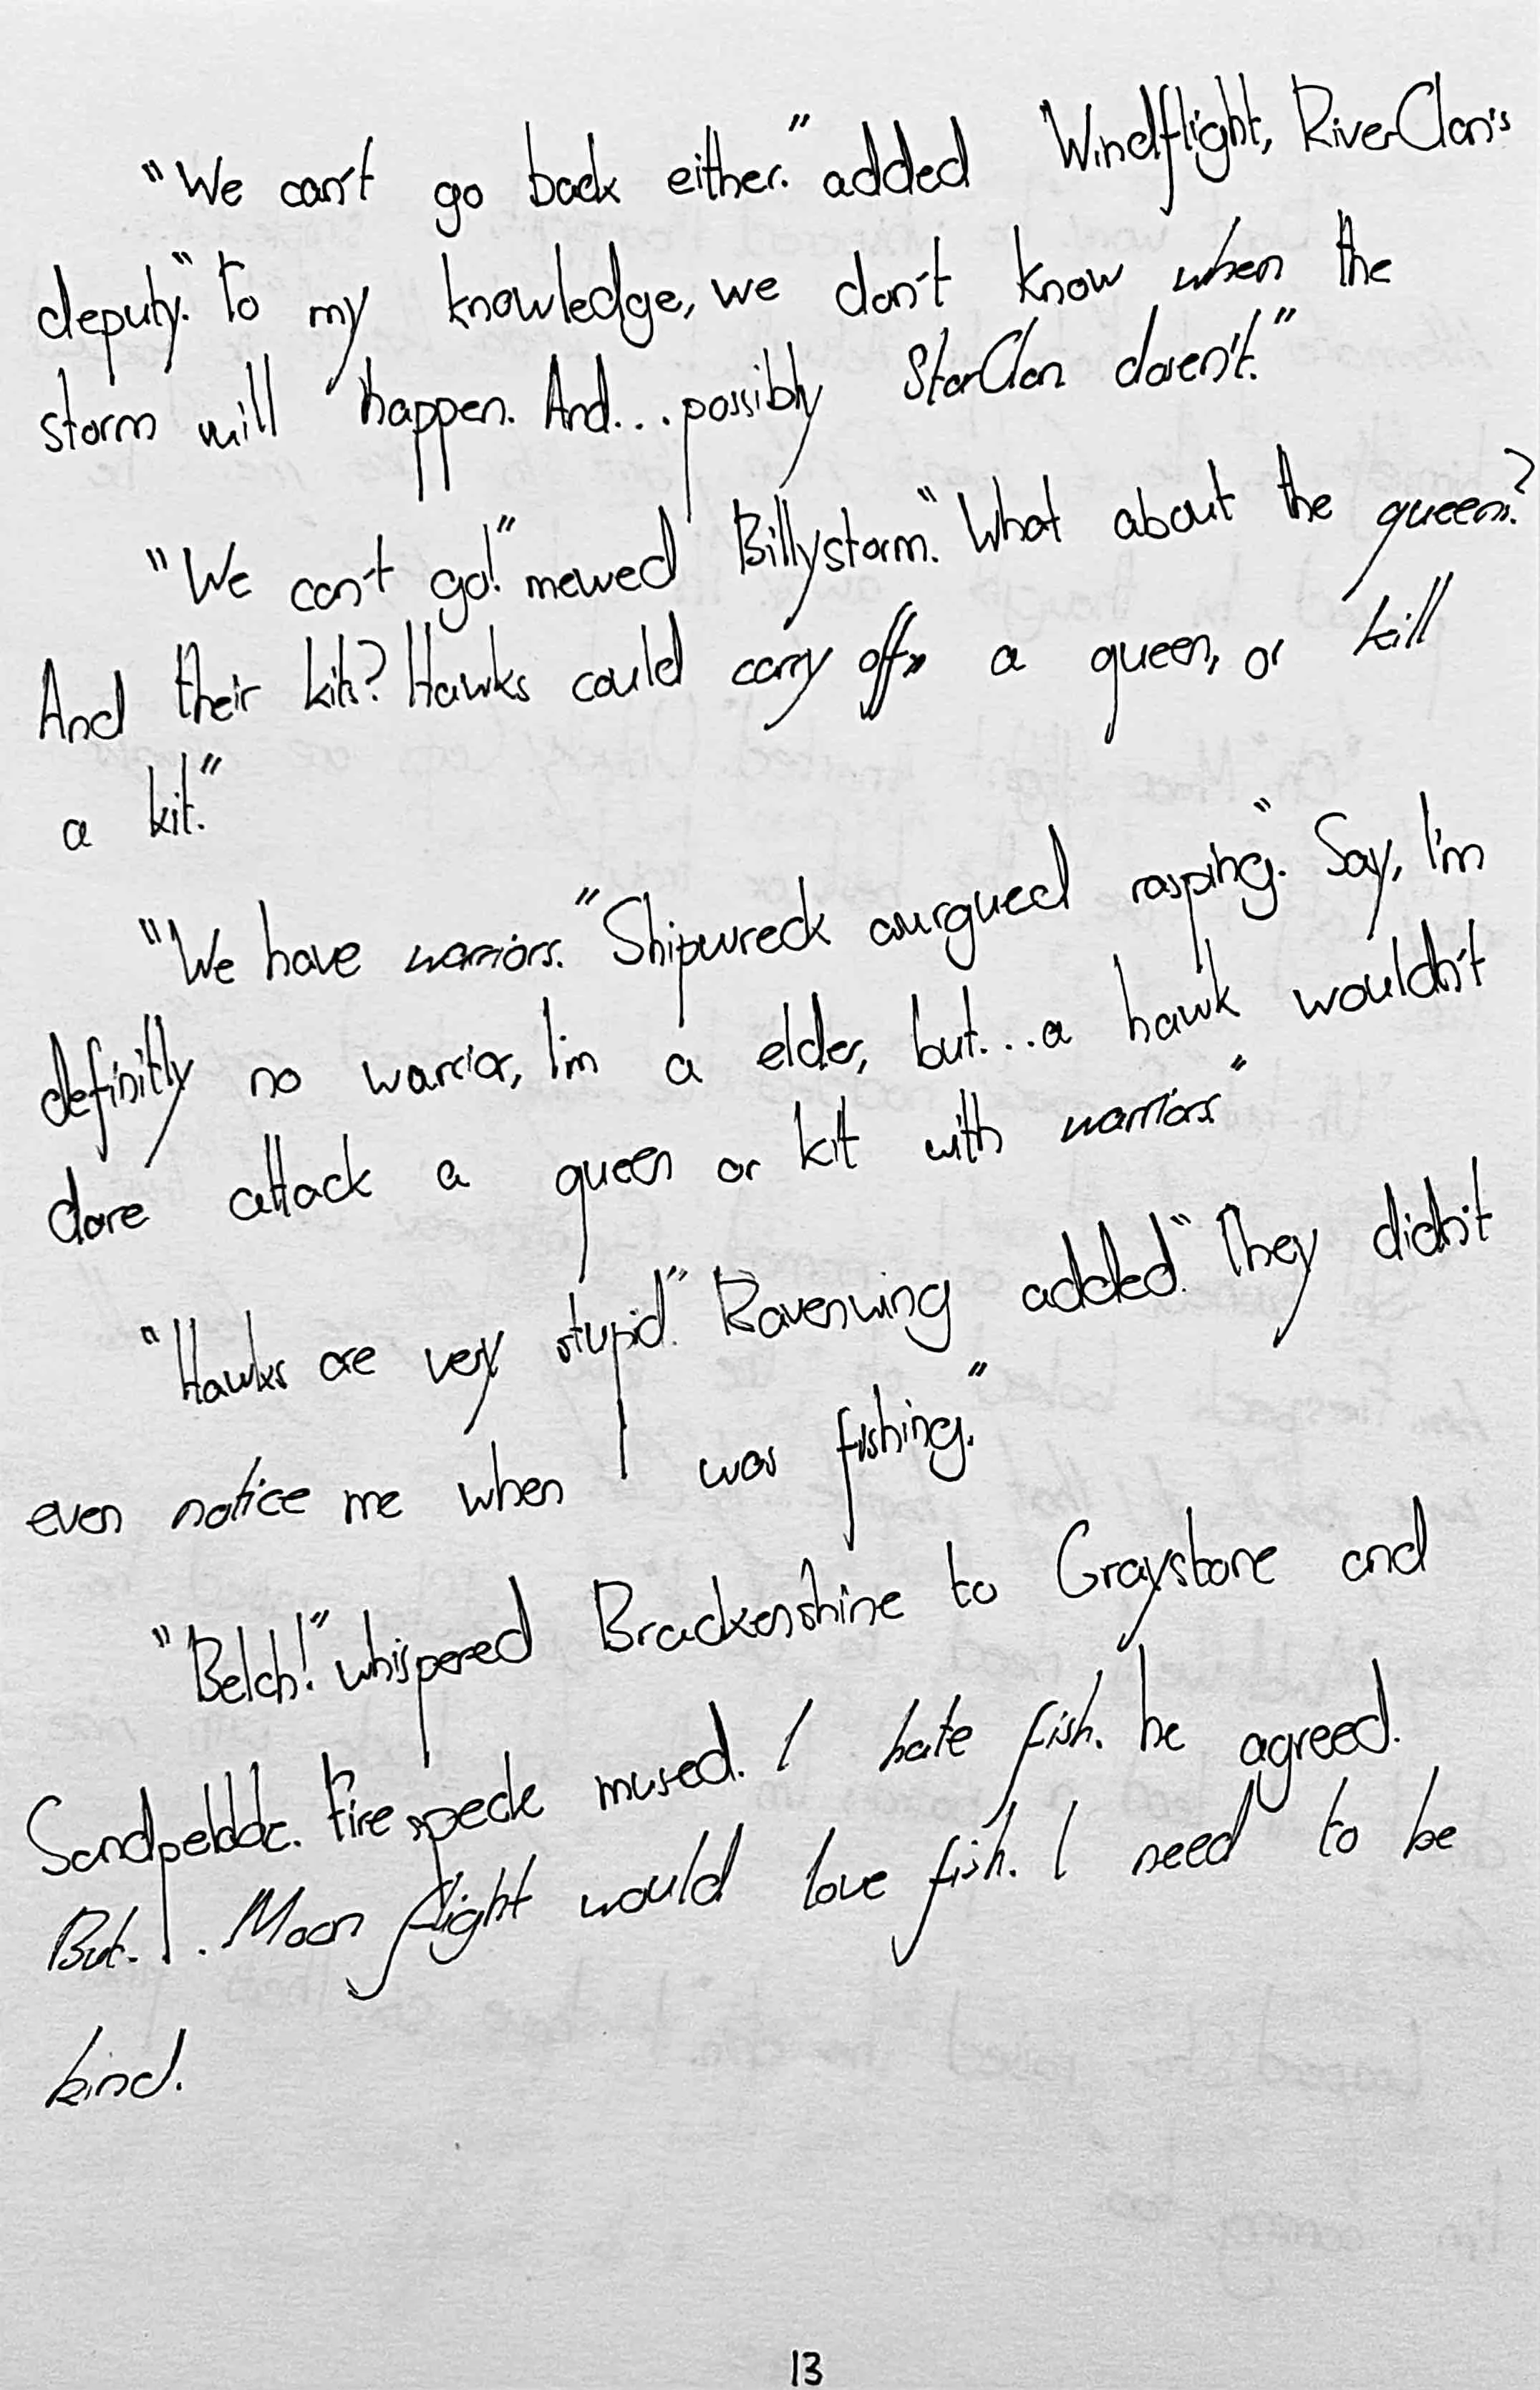 "We can't go back either." added Windflight, RiverClan's
deputy. "To my knowledge, we don't know when the
storm will happen. And... possibly StarClan doesn't."
"We can't go!" mewed Billystorm. "What about the queens?
And their kits? Hawks could carry off a queen, or kill
a kit."
"We have warriors." Shipwreck aurgued rasping. "Say, I'm
definitly no warrior, I'm a elder, but... a hawk wouldn't
dare attack a queen or kit with warriors."
"Hawks are very stupid." Ravenwing added. "They didn't
even notice me when I was fishing."
"Belch!" whispered Brackenshine to Graystone and
Sandpebble. Firespeck mused. I hate fish. he agreed.
But... Moonflight would love fish. I need to be
kind.
13